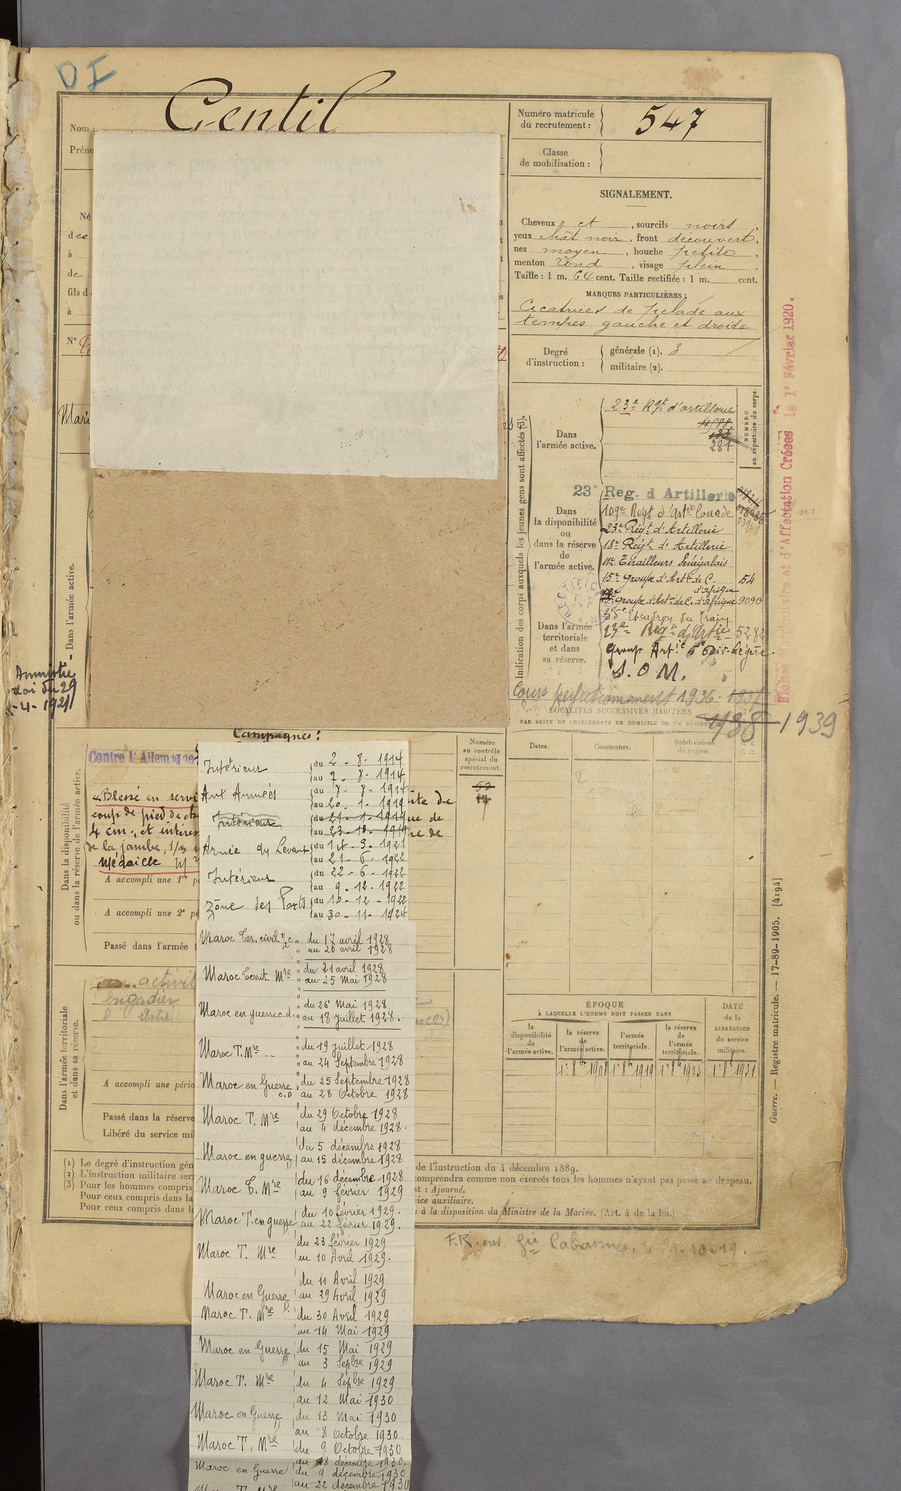 DI
Gentil
Nom :
Préno
Né
des
à
de
fils d
à
N°
Mari
Dans l'armée active.
Amnistie
Loi du 29
-4-1921
Numéro matricule
du recrutement :
547
Classe
de mobilisation :
SIGNALEMENT.
Cheveux et , sourcils noirs
yeux chât noir, front découvert,
nez moyen , bouche petite ,
menton rond , visage plein .
Taille : 1 m. 64 cent. Taille rectifiée : 1 m. cent.
MARQUES PARTICULIÈRES :
Cicatrices de pelade aux
tempes gauche et droite
Degré
d'instruction :
générale (1). 3
militaire (2).
Indication des corps auxquels les jeunes gens sont affectés (3).
NUMÉRO
au répertoire du corps.
Dans
l'armée active.
23e Rgt d'artillerie
281
Dans
la disponibilité
ou
dans la réserve
de
l'armée active.
23 Reg. d Artillerie
109e Régt d'Artie Lourde
23e Régt d'Artillerie
18e Régt d'Artillerie
Tirailleurs Sénégalais
15e groupe d'Artie de C. d'Afrique 54
groupe d'Artie de C. d'Afrique 9090
Dans l'armée
territoriale
et dans
sa réserve.
35e Escadron du Train
Reg. d'Artie 5282
Group Artie 5e Div. Légère.
S. O. M.
Cours perfectionnement 1936 - 1937
1938 - 1939
LOCALITÉS SUCCESSIVES HABITÉES
PAR SUITE DE CHANGEMENTS DE DOMICILE OU DE RÉSIDENCE
Dates.
Communes.
Subdivisions
de région.
d'Affectation Créées le 1er Février 1920.
Campagnes :
Contre l'Allemagne
Numéro
au contrôle
spécial du
recrutement.
Dans la disponibilité
ou dans la réserve de l'armée active.
Blessé en servi
coup de pied de ch
4 cm, et intéres
de la jambe,
Médaille
A accompli une 1re pé
A accompli une 2e pé
Passé dans l'armée
Dans l'armée territoriale
et dans sa réserve.
activit
brigadier
A accompli une pério
Passé dans la réserve
Libéré du service mi
Intérieur du 2-8-1914
au 7-8-1914
Aux Armées du 7-8-1914
au 20-1-1919
Intérieur du 21-1-1919
Armée du Levant
au 21-6-1922
Intérieur du 22-6-1922
au 9-12-1922
Zône des Forts du 10-12-1922
au 30-11-1924
Maroc Ter. civil du 17 avril 1928
au 20 avril 1928
Maroc Territ. Mre du 21 avril 1928
au 25 Mai 1928
Maroc en guerre c.d. du 26 Mai 1928
au 18 juillet 1928.
Maroc T. Mre du 19 juillet 1928
au 24 Septembre 1928
Maroc en Guerre du 25 Septembre 1928
c.d au 28 Octobre 1928
Maroc T. Mre du 29 Octobre 1928
au 4 décembre 1928.
Maroc en guerre du 5 décembre 1928
au 15 décembre 1928
Maroc T. Mre du 16 décembre 1928
au 9 février 1929
Maroc T. en guerre du 10 février 1929.
au 22 février 1929.
Maroc T. Mre du 23 février 1929
au 10 Avril 1929.
Maroc en Guerre du 11 Avril 1929
au 29 Avril 1929
Maroc T. Mre du 30 Avril 1929
au 14 Mai 1929
Maroc en Guerre du 15 Mai 1929
au 3 Sepbre 1929
Maroc T. Mre du 4 Sepbre 1929
au 12 Mai 1930
Maroc en Guerre du 13 Mai 1930
au 8 Octobre 1930
Maroc T. Mre du 9 Octobre 1930
au 8 décembre 1930.
Maroc en Guerre du 9 décembre 1930
au 22 décembre 1930
Maroc T. Mre
ÉPOQUE
À LAQUELLE L'HOMME DOIT PASSER DANS
DATE
de la
LIBÉRATION
du service
militaire.
la
disponibilité
de
l'armée active.
la réserve
de
l'armée active.
l'armée
territoriale.
la réserve
de
l'armée
territoriale.
1er 8bre 1908
1er 8bre 1919
1er 8bre 1925
1er 8bre 1931
Guerre. — Registre matricule. — 17-89-1905. [4194]
(1) Le degré d'instruction gén
de l'instruction du 4 décembre 1889.
(2) L'instruction militaire ser
comprendra comme non exercés tous les hommes n'ayant pas passé au drapeau.
(3) Pour les hommes compris
st : Ajourné.
Pour ceux compris dans la
ice auxiliaire.
Pour ceux compris dans l
à la disposition du Ministre de la Marine. (Art. 4 de la loi.)